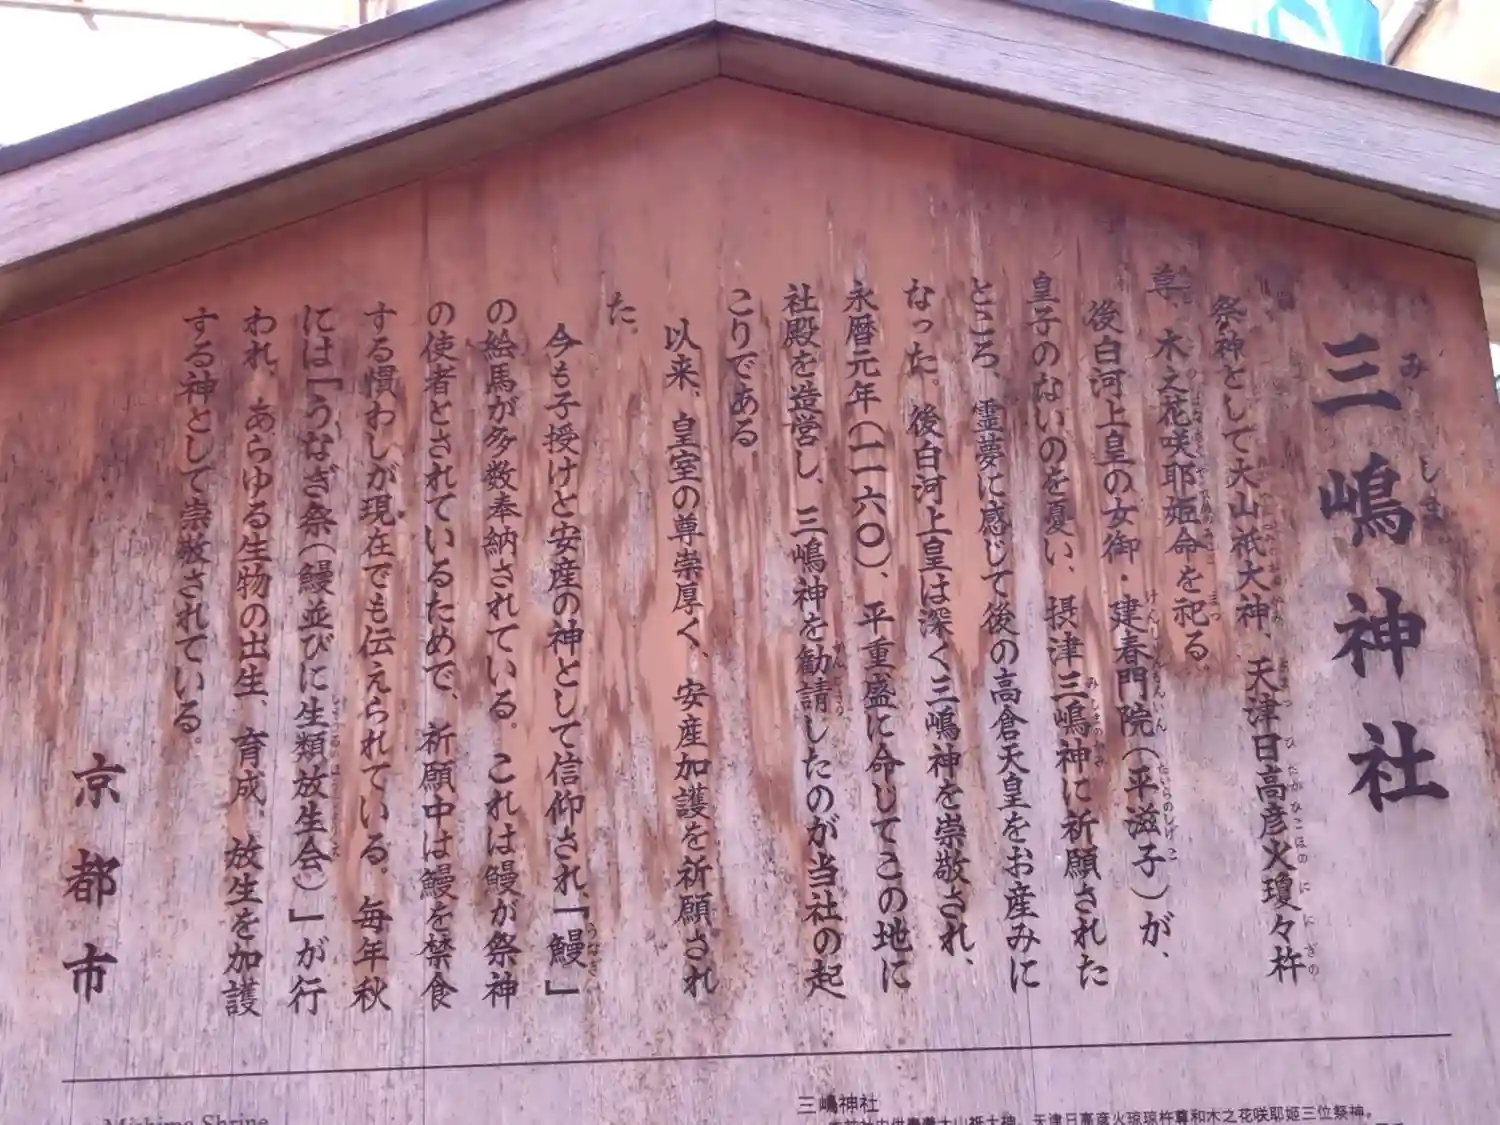 三嶋神社
祭神として大山祇大神、天津日高彦火瓊々杵
尊、木之花咲耶姫命を祀る。
後白河上皇の女御・建春門院（平滋子）が、
皇子のないのを憂い、摂津三嶋神に祈願された
ところ、霊夢に感じて後の高倉天皇をお産みに
なった。後白河上皇は深く三嶋神を崇敬され、
永暦元年（一一六〇）、平重盛に命じてこの地に
社殿を造営し、三嶋神を勧請したのが当社の起
こりである。
以来、皇室の尊崇厚く、安産加護を祈願され
た。
今も子授けと安産の神として信仰され、「鰻」
の絵馬が多数奉納されている。これは鰻が祭神
の使者とされているためで、祈願中は鰻を禁食
する慣わしが現在でも伝えられている。毎年秋
には「うなぎ祭（鰻並びに生類放生会）」が行
われ、あらゆる生物の出生、育成、放生を加護
する神として崇敬されている。
京都市
Mishima Shrine
三嶋神社
天津日高彦火琼琼杵尊和木之花咲耶姬三位祭神。